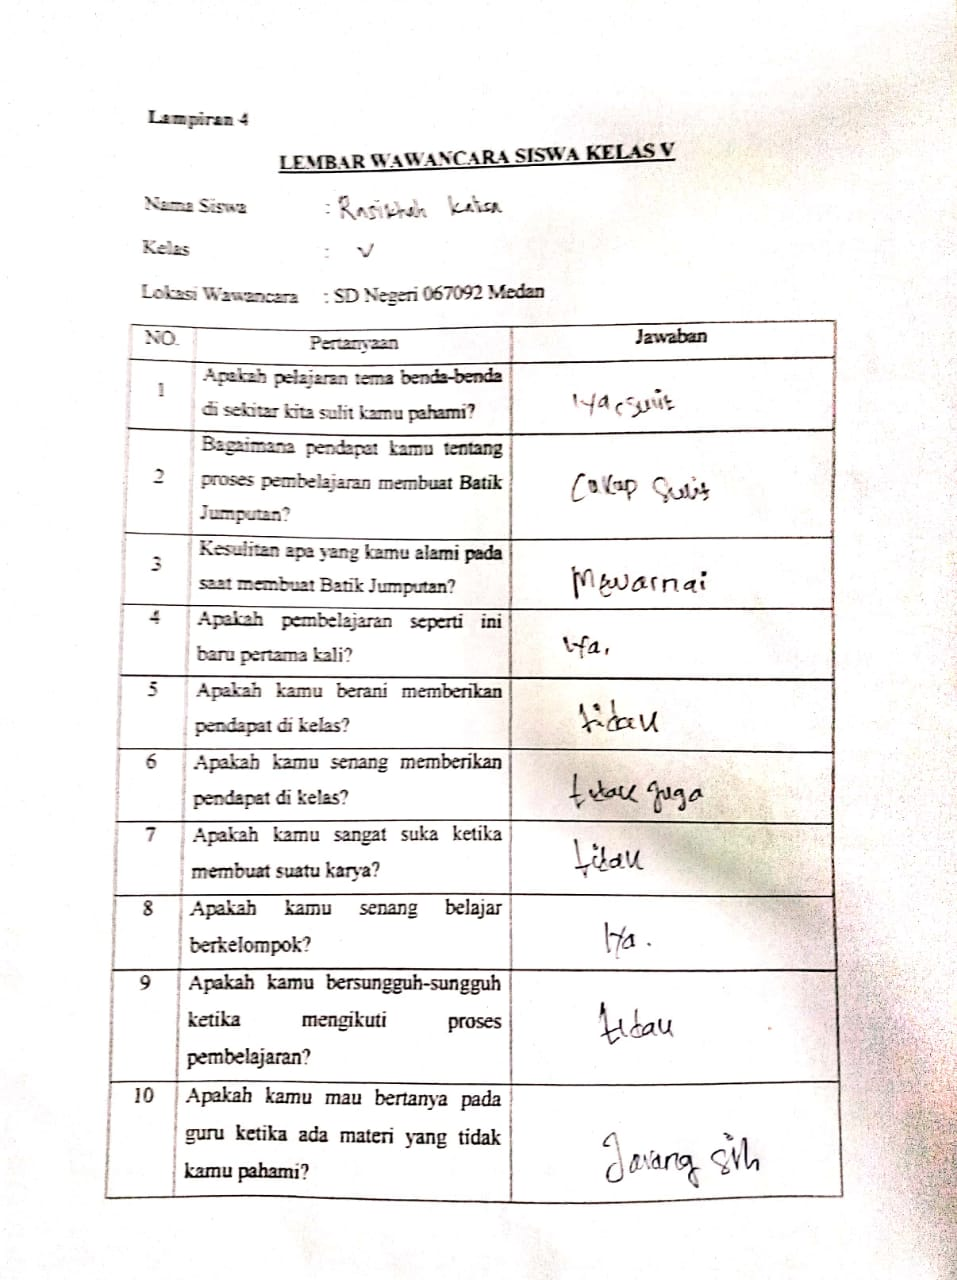 Lampiran 4
LEMBAR WAWANCARA SISWA KELAS V
Nama Siswa : Rasikhah
Kelas : V
Lokasi Wawancara : SD Negeri 067092 Medan
NO. Pertanyaan Jawaban
1 Apakah pelajaran tema benda-benda
di sekitar kita sulit kamu pahami?
Iya, sulit
2 Bagaimana pendapat kamu tentang
proses pembelajaran membuat Batik
Jumputan?
Cakap Sulit
3 Kesulitan apa yang kamu alami pada
saat membuat Batik Jumputan?
Mewarnai
4 Apakah pembelajaran seperti ini
baru pertama kali?
Iya,
5 Apakah kamu berani memberikan
pendapat di kelas?
tidak
6 Apakah kamu senang memberikan
pendapat di kelas?
tidak juga
7 Apakah kamu sangat suka ketika
membuat suatu karya?
tidak
8 Apakah kamu senang belajar
berkelompok?
Iya.
9 Apakah kamu bersungguh-sungguh
ketika mengikuti proses
pembelajaran?
tidak
10 Apakah kamu mau bertanya pada
guru ketika ada materi yang tidak
kamu pahami?
Jarang sih